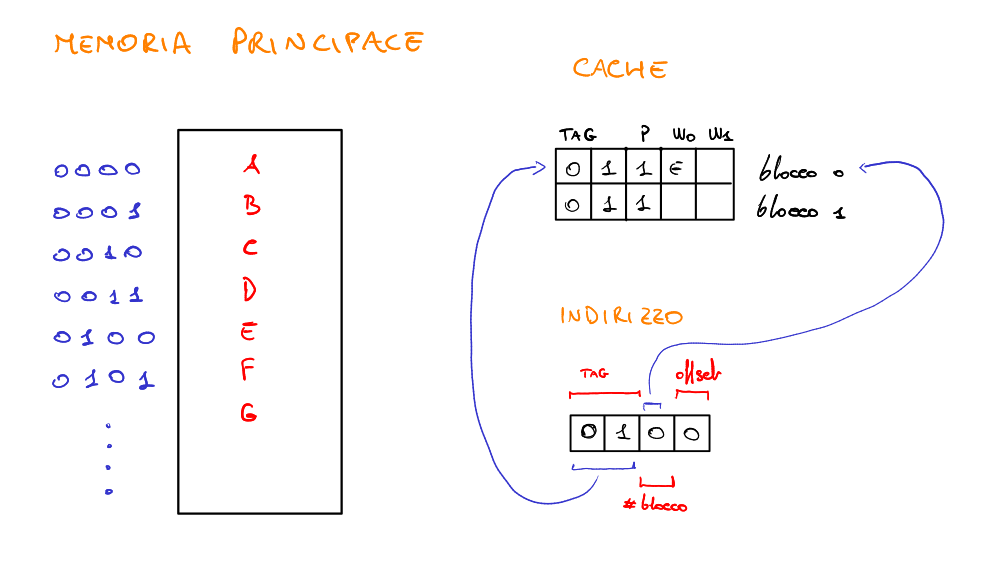 MEMORIA PRINCIPALE
0000 A
0001 B
0010 C
0011 D
0100 E
0101 F
G
CACHE
TAG P W0 W1
0 1 1 E blocco 0
0 1 1 blocco 1
INDIRIZZO
TAG offset
0 1 0 0
# blocco